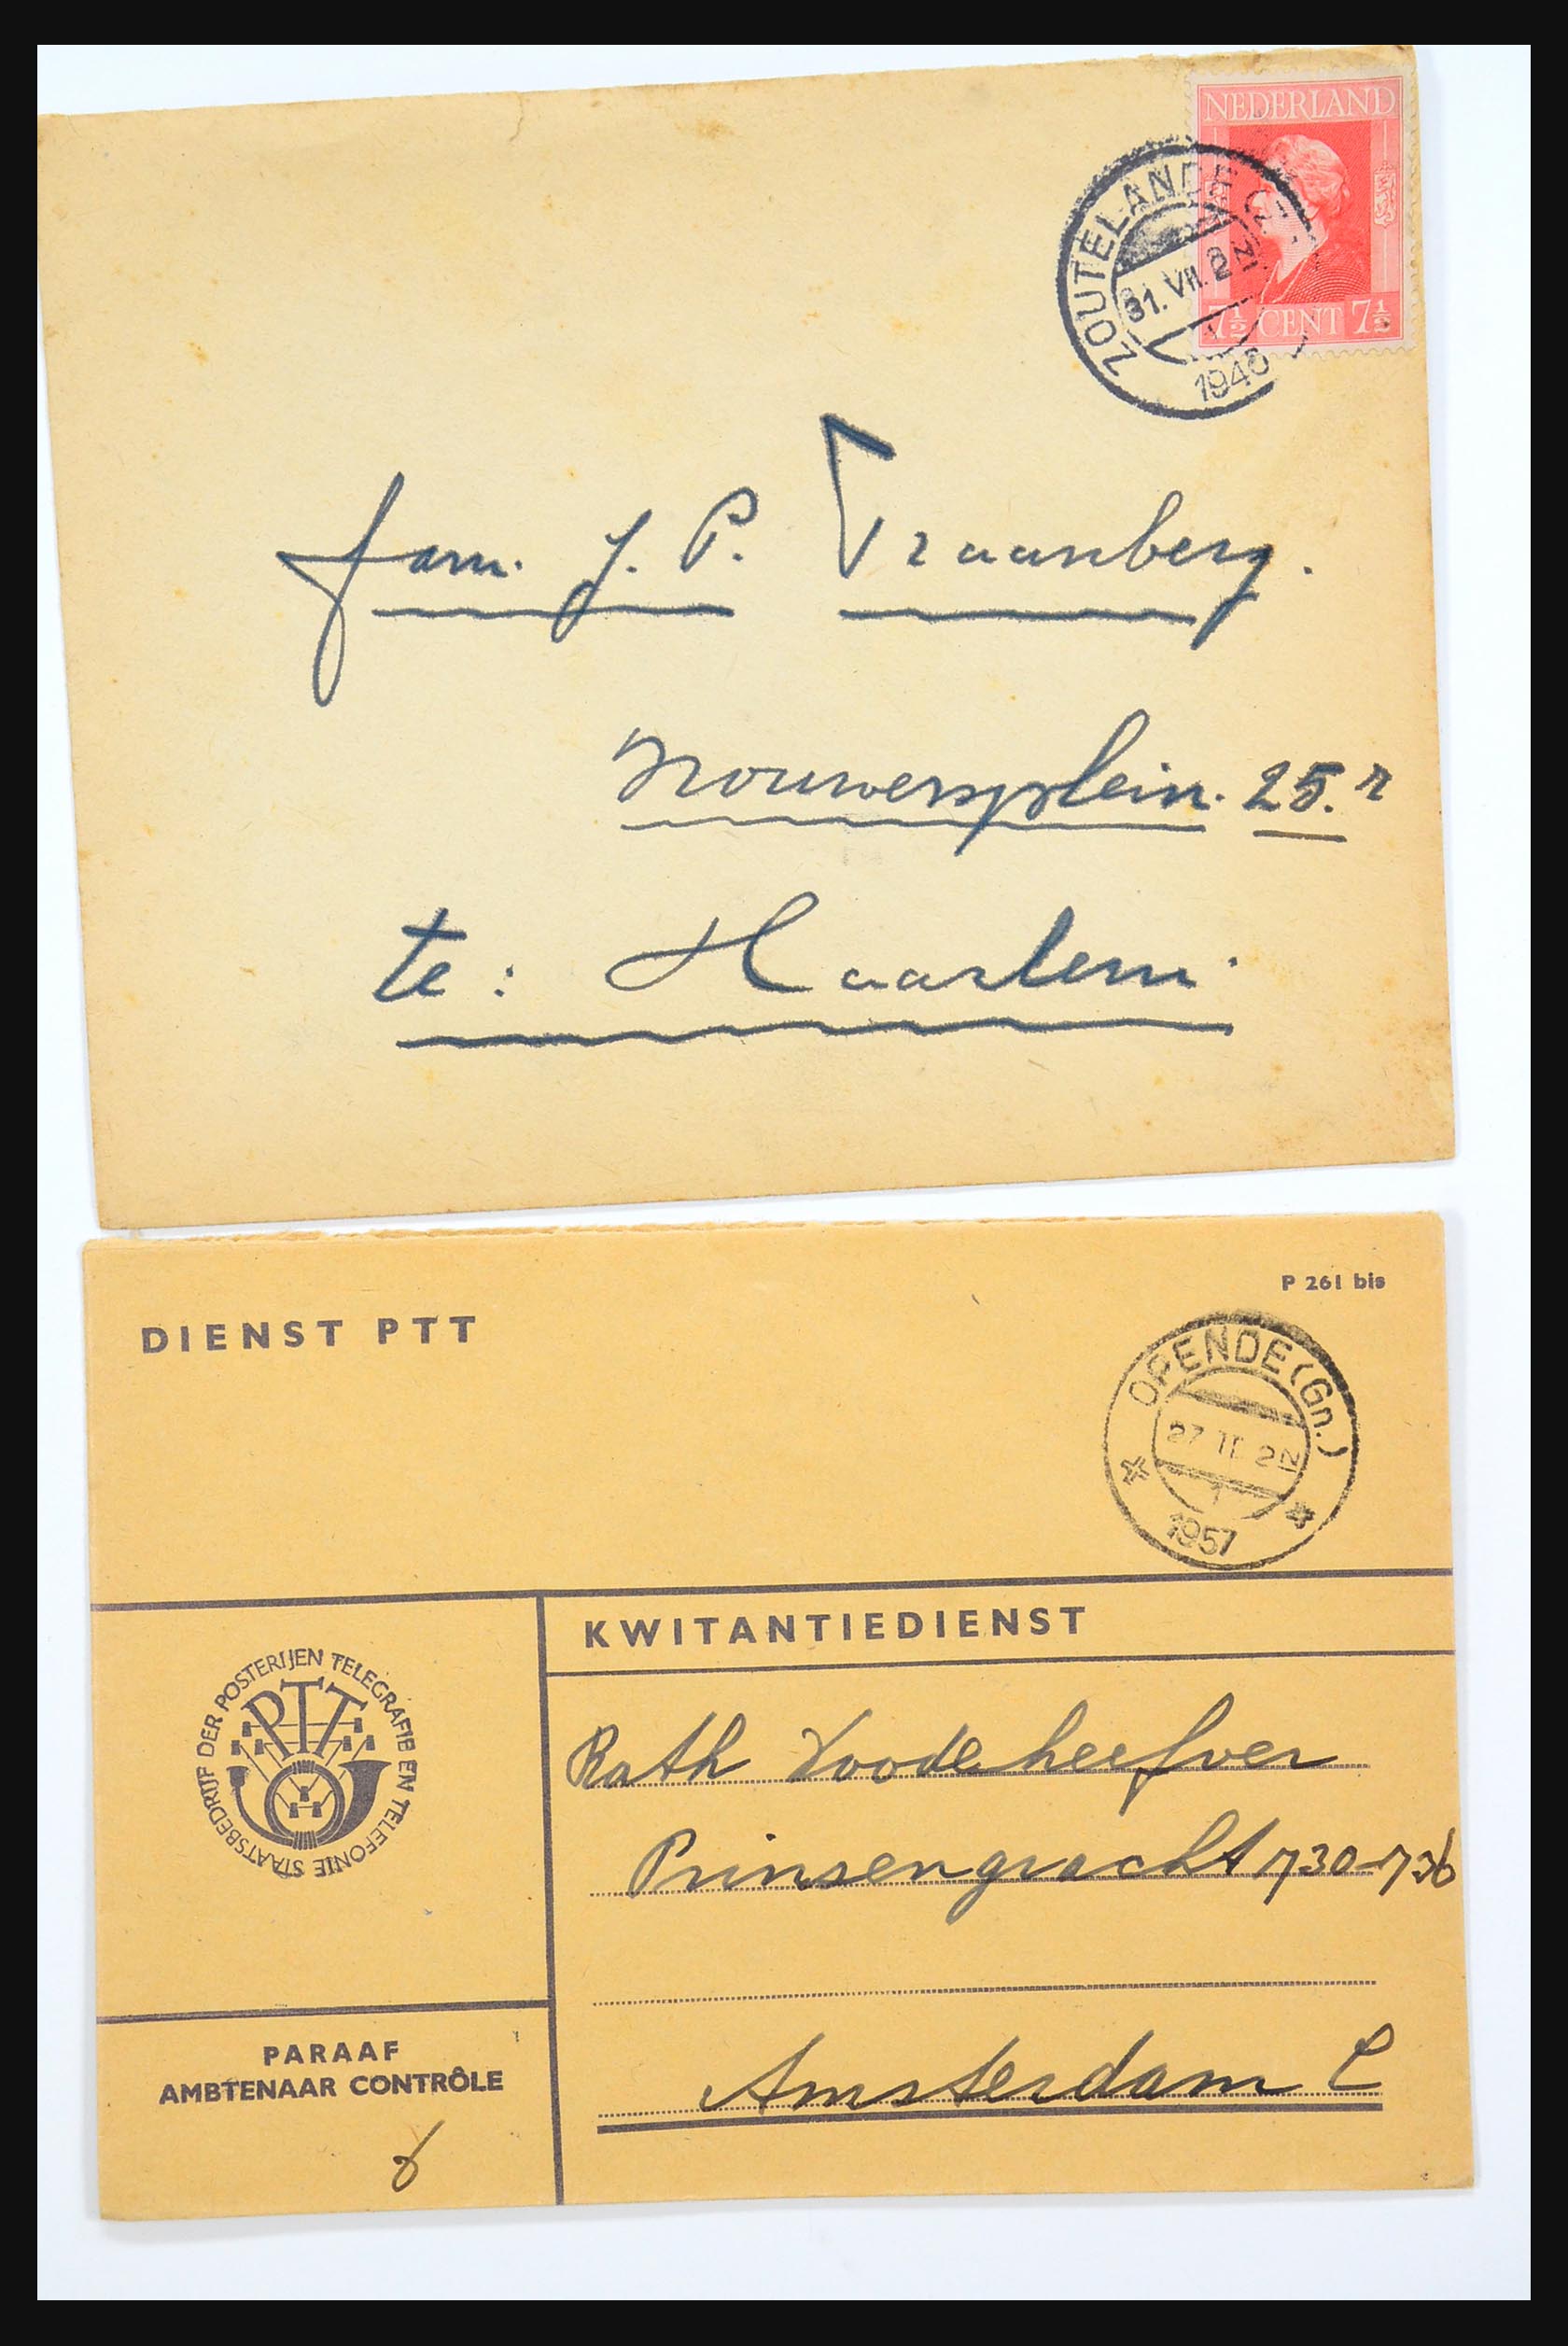 NEDERLAND
7½ CENT 7½
ZOUTELANDE
31.VII.2N
1946
fam. J. P. Traanberg.
Brouwersplein. 25.r
te: Haarlem.
P 261 bis
DIENST PTT
OPENDE (Gn.)
27 II 2N
1957
KWITANTIEDIENST
STAATSBEDRIJF DER POSTERIJEN TELEGRAFIE EN TELEFONIE
PTT
Rath
Prinsengracht 730-736
Amsterdam C
PARAAF
AMBTENAAR CONTRÔLE